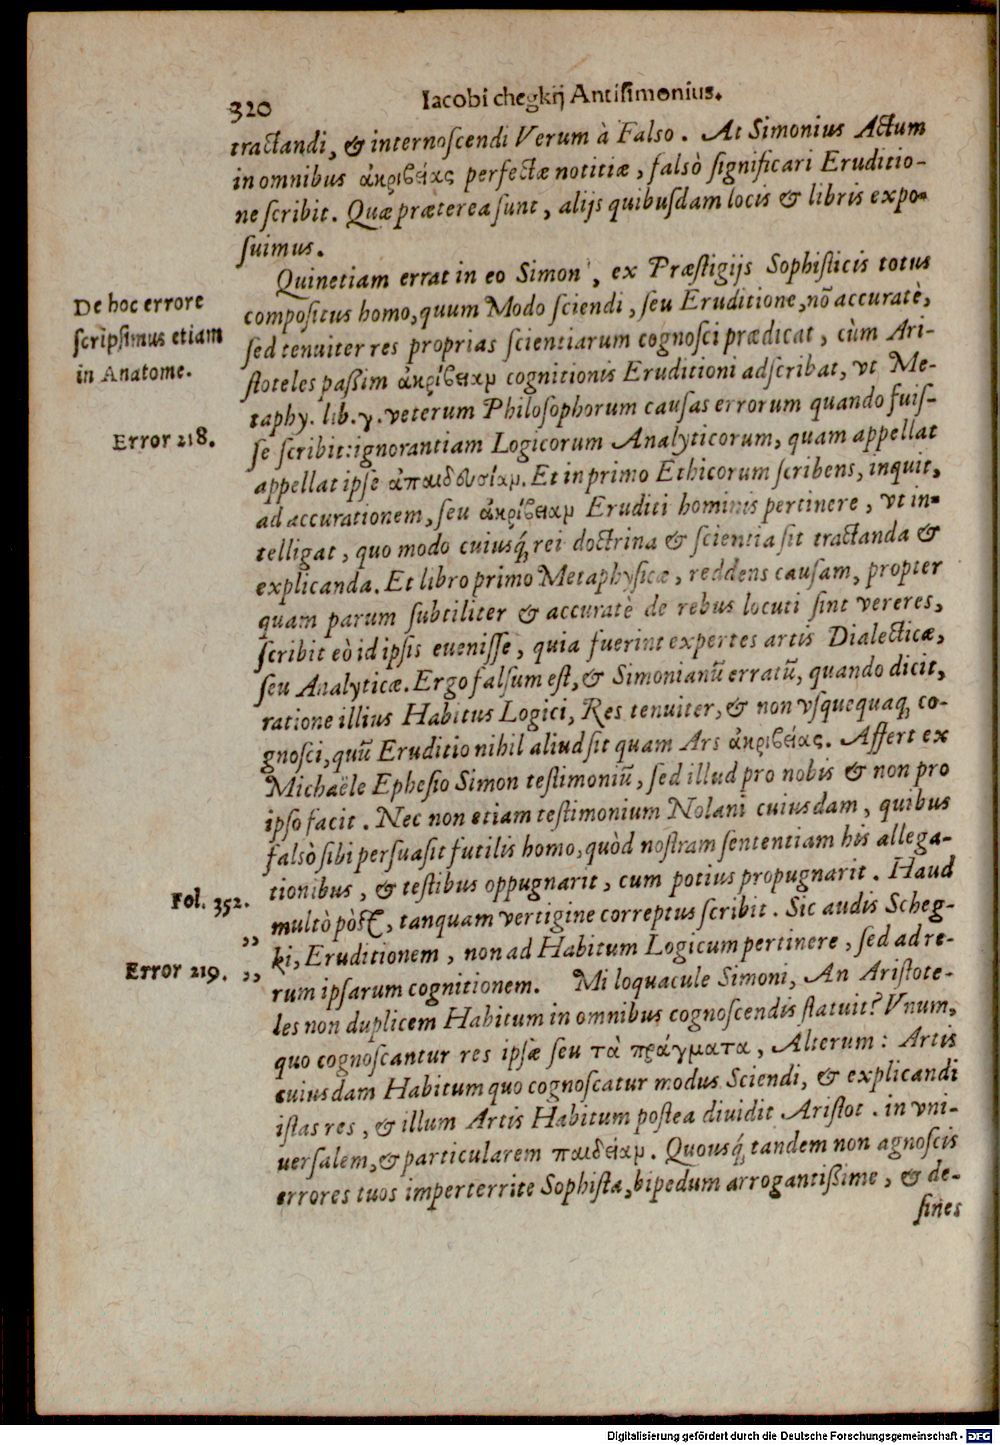 320
Iacobi chegkij Antisimonius.
tractandi, & internoscendi Verum à Falso. At Simonius Actum
in omnibus ἀκριβείας perfectæ notitiæ, falsò significari Eruditio-
ne scribit. Quæ præterea sunt, alijs quibusdam locis & libris expo-
suimus.
Quinetiam errat in eo Simon', ex Præstigijs Sophisticis totus
compositus homo, quum Modo sciendi, seu Eruditione, nõ accuratè,
sed tenuiter res proprias scientiarum cognosci prædicat, cùm Ari-
stoteles paßim ἀκρίβειαμ cognitionis Eruditioni adscribat, vt Me-
taphy. lib. γ. veterum Philosophorum causas errorum quando fuis-
se scribit: ignorantiam Logicorum Analyticorum, quam appellat
appellat ipse ἀπαιδευσίαμ. Et in primo Ethicorum scribens, inquit,
ad accurationem, seu ἀκρίβειαμ Eruditi hominis pertinere, vt in-
telligat, quo modo cuiusq́; rei doctrina & scientia sit tractanda &
explicanda. Et libro primo Metaphysicæ, reddens causam, propter
quam parum subtiliter & accuratè de rebus locuti sint vereres,
scribit eò id ipsis euenisse, quia fuerint expertes artis Dialecticæ,
seu Analyticæ. Ergo falsum est, & Simonianũ erratũ, quando dicit,
ratione illius Habitus Logici, Res tenuiter, & non vsquequaq; co-
gnosci, quũ Eruditio nihil aliud sit quam Ars ἀκριβείας. Affert ex
Michaële Ephesio Simon testimoniũ, sed illud pro nobis & non pro
ipso facit. Nec non etiam testimonium Nolani cuiusdam, quibus
falsò sibi persuasit futilis homo, quòd nostram sententiam his allega-
tionibus, & testibus oppugnarit, cum potius propugnarit. Haud
multò pòst, tanquam vertigine correptus scribit. Sic audis Scheg-
ki, Eruditionem, non ad Habitum Logicum pertinere, sed ad re-
rum ipsarum cognitionem. Mi loquacule Simoni, An Aristote-
les non duplicem Habitum in omnibus cognoscendis statuit? Vnum,
quo cognoscantur res ipsæ seu τὰ πράγματα, Alterum: Artis
cuiusdam Habitum quo cognoscatur modus Sciendi, & explicandi
istas res, & illum Artis Habitum postea diuidit Aristot. in vni-
uersalem, & particularem παιδείαμ. Quousq́; tandem non agnoscis
errores tuos imperterrite Sophista, bipedum arrogantißime, & de-
sines
De hoc errore
scripsimus etiam
in Anatome.
Error 218.
Fol. 352.
,,
Error 219. ,,
Digitalisierung gefördert durch die Deutsche Forschungsgemeinschaft - DFG